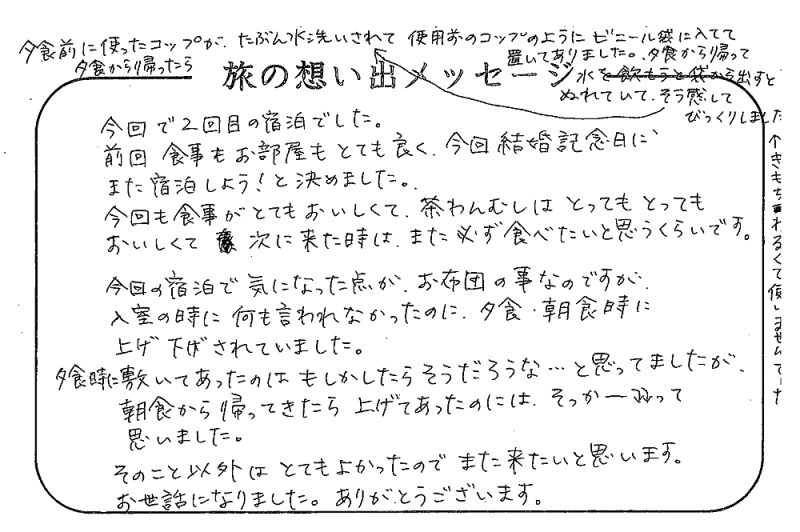 夕食前に使ったコップが、たぶん水洗いされて 使用前のコップのように ビニール袋に入てて
置いてありました。夕食から帰って
夕食から帰ったら
旅の想い出メッセージ
水を飲もうと袋から出すと
ぬれていて、そう感して
びっくりしました
↑きもちわるくて使いませんでした
今回で2回目の宿泊でした。
前回 食事もお部屋も とても良く、今回 結婚記念日に
また宿泊しよう!と決めました。
今回も食事がとてもおいしくて、茶わんむしは とっても とっても
おいしくて 次に来た時は、また必ず食べたいと思うくらいです。
今回の宿泊で 気になった点が、お布団の事なのですが、
入室の時に 何も言われなかったのに、夕食・朝食時に
上げ 下げされていました。
夕食時に敷いてあったのは もしかしたらそうだろうな…と思ってましたが、
朝食から帰ってきたら 上げてあったのには、そっかーって
思いました。
そのこと以外は とてもよかったので また来たいと思います。
お世話になりました。ありがとうございます。